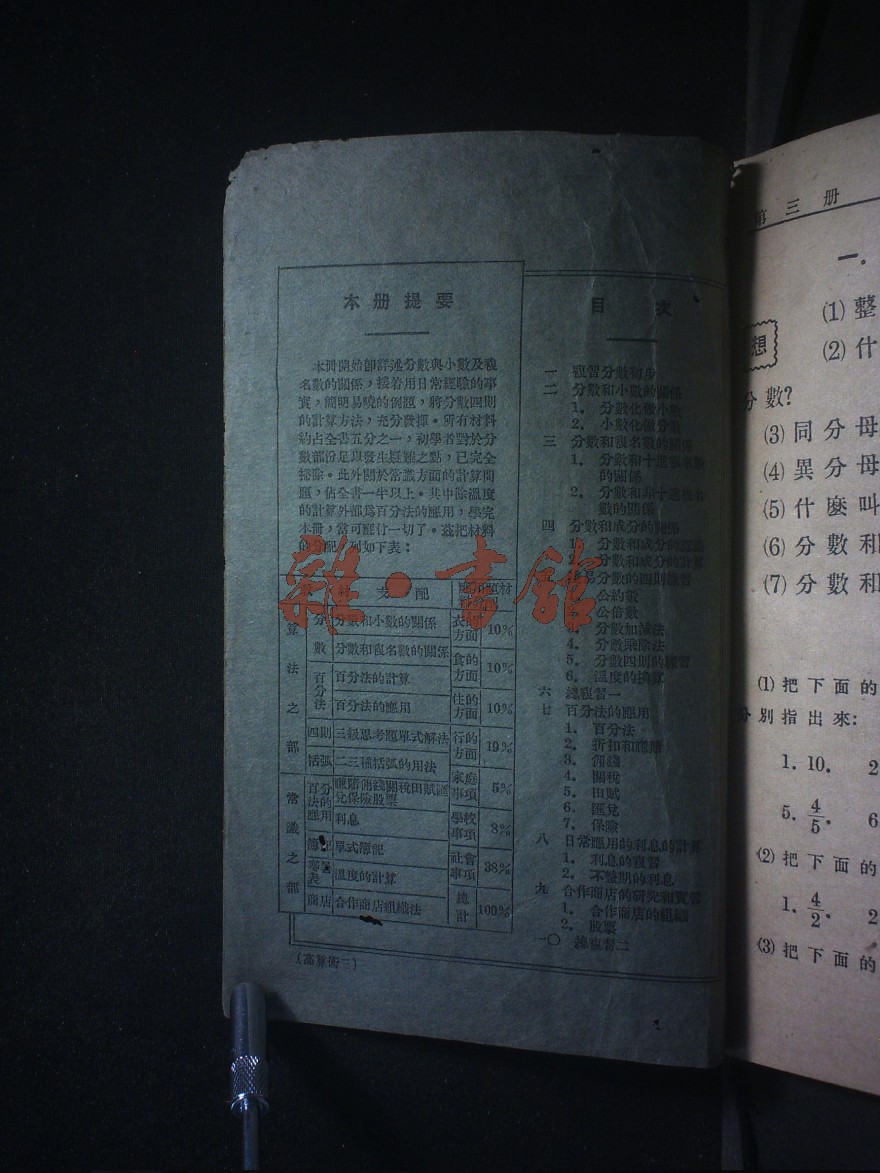 本册提要
本冊開始卽詳述分數與小數及複
名數的關係，接着用日常經驗的事
實，簡明易曉的例題，將分數四則
的計算方法，充分發揮。所有材料
約占全書五分之一，初學者對於分
數部份足以發生疑難之點，已完全
掃除。此外關於常識方面的計算問
題，佔全書一半以上。其中除溫度
的計算外都爲百分法的應用，學完
本冊，當可應付一切了。茲把材料
的分配，列如下表：
支配
算法之部
分數
分數和小數的關係
分數和複名數的關係
百分法
百分法的計算
百分法的應用
四則
三級思考題單式解法
括弧
二三種括弧的用法
常識之部
百分法的應用
賺賠佣錢關稅田賦匯
兌保險股票
利息
單式簿記
寒暑表
溫度的計算
商店
合作商店組織法
衣的方面 10%
食的方面 10%
住的方面 10%
行的方面 19%
家庭事項 5%
學校事項 8%
社會事項 38%
總計 100%
(高算術三)
目次
一 複習分數初步
二 分數和小數的關係
1. 分數化做小數
2. 小數化做分數
三 分數和複名數的關係
1. 分數和十進複名數
的關係
2. 分數和非十進複名
數的關係
四 分數和成分的關係
分數和成分的
分數和成分的計算
易分數的四則練習
公約數
公倍數
分數加減法
4. 分數乘除法
5. 分數四則的練習
6. 溫度的換算
六 總複習一
七 百分法的應用
1. 百分法
2. 折扣和賺賠
3. 佣錢
4. 關稅
5. 田賦
6. 匯兌
7. 保險
八 日常應用的利息的計算
1. 利息的複習
2. 不整期的利息
九 合作商店的研究和實習
1. 合作商店的組織
2. 股票
一〇 總複習二
雜·書館
第三册
一.
想
(1) 整
(2) 什
分數?
(3) 同分母
(4) 異分母
(5) 什麼叫
(6) 分數和
(7) 分數和
(1) 把下面的
分別指出來:
1. 10. 2
5. 4/5. 6
(2) 把下面的
1. 4/2. 2
(3) 把下面的